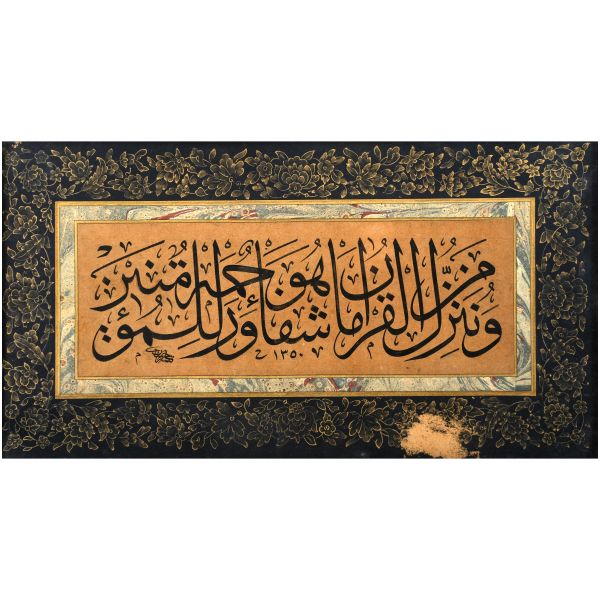 وننزل من القرآن ما هو شفاء ورحمة للمؤمنين
١٣٥٠